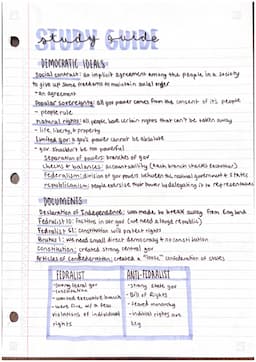 STUDY GUIDE
study guide
DEMOCRATIC IDEALS
Social contract: an implicit agreement among the people in a society
to give up some freedoms to maintain social order
- an agreement
Popular sovereignty: all gov power comes from the consent of its people
- people rule
Natural rights: all people have certain rights that can't be taken away
- life, liberty, & property
Limited gov: a gov's power cannot be absolute
- gov shouldn't be too powerful
Separation of powers: branches of gov
checks & balances: accountability (each branch checks eachother)
Federalism: division of gov powers between the national government & states
republicanism: people exercise their power by delegating it to representatives
DOCUMENTS
Declaration of Independence: was made to break away from England
Federalist 10: factions in our gov (we need a large republic)
Federalist 51: constitution will protect rights
Brutus 1: we need small direct democracy & no constitution
Constitution: created strong central gov
Articles of Confederation: created a "loose" confederation of states
FEDERALIST
- strong federal gov
- constitution
- wanted executive branch
- were fine w/ a few
violations of individual
rights
ANTI-FEDERALIST
- strong state gov
- Bill of Rights
- feared monarchy
- individual rights are
key